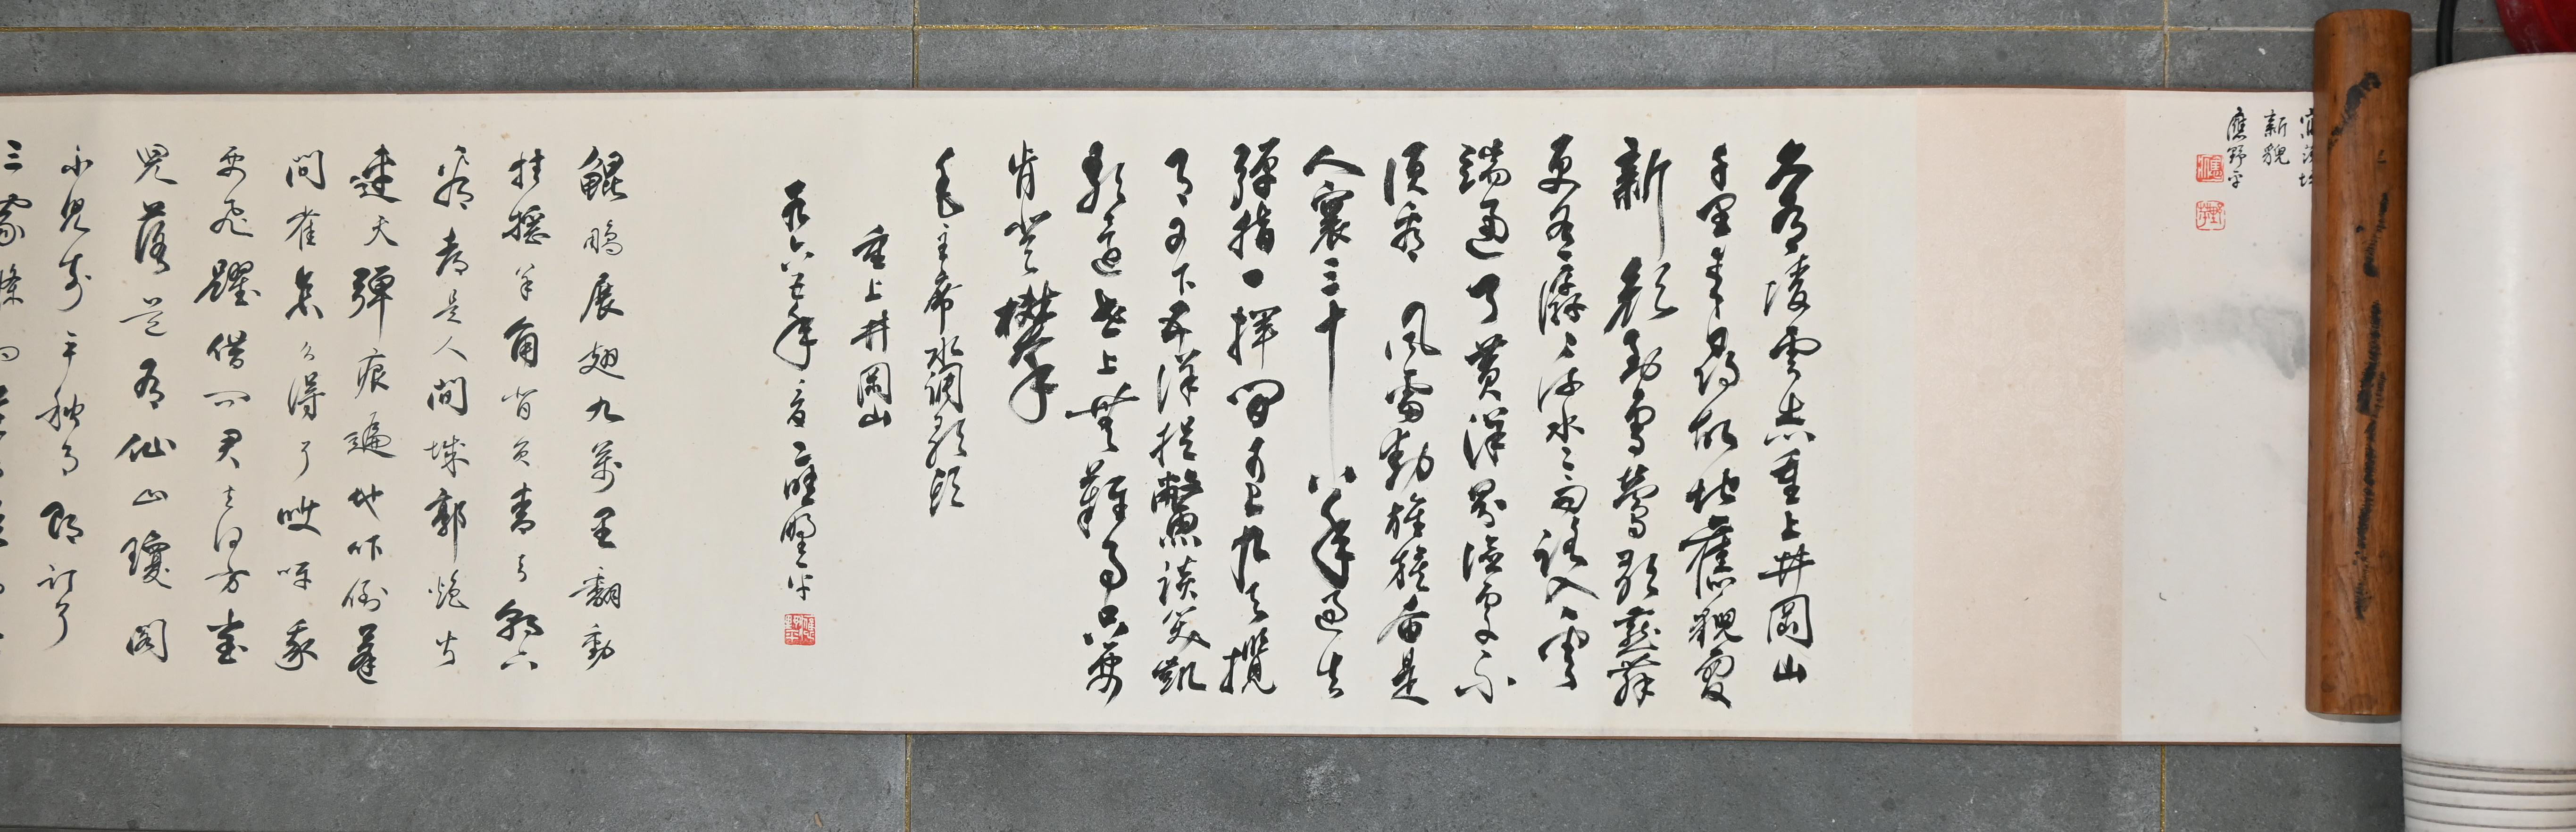 新貌
應野平
久有凌雲志重上井岡山
千里來尋故地舊貌變
新顏到處鶯歌燕舞
更有潺潺流水高路入雲
端過了黃洋界險處不
須看 風雷動旌旗奮是
人寰三十八年過去
彈指一揮間可上九天攬
月可下五洋捉鱉談笑凱
歌還世上無難事只要
肯登攀
毛主席水調歌頭
重上井岡山
應野平
鯤鵬展翅九萬里翻動
扶搖羊角背負青天朝下
看都是人間城郭炮火
連天彈痕遍地吓倒蓬
間雀怎么得了哎呀我
要飛躍借問君去何方雀
兒答道有仙山瓊閣
不見前年秋月朗訂了
三家條約